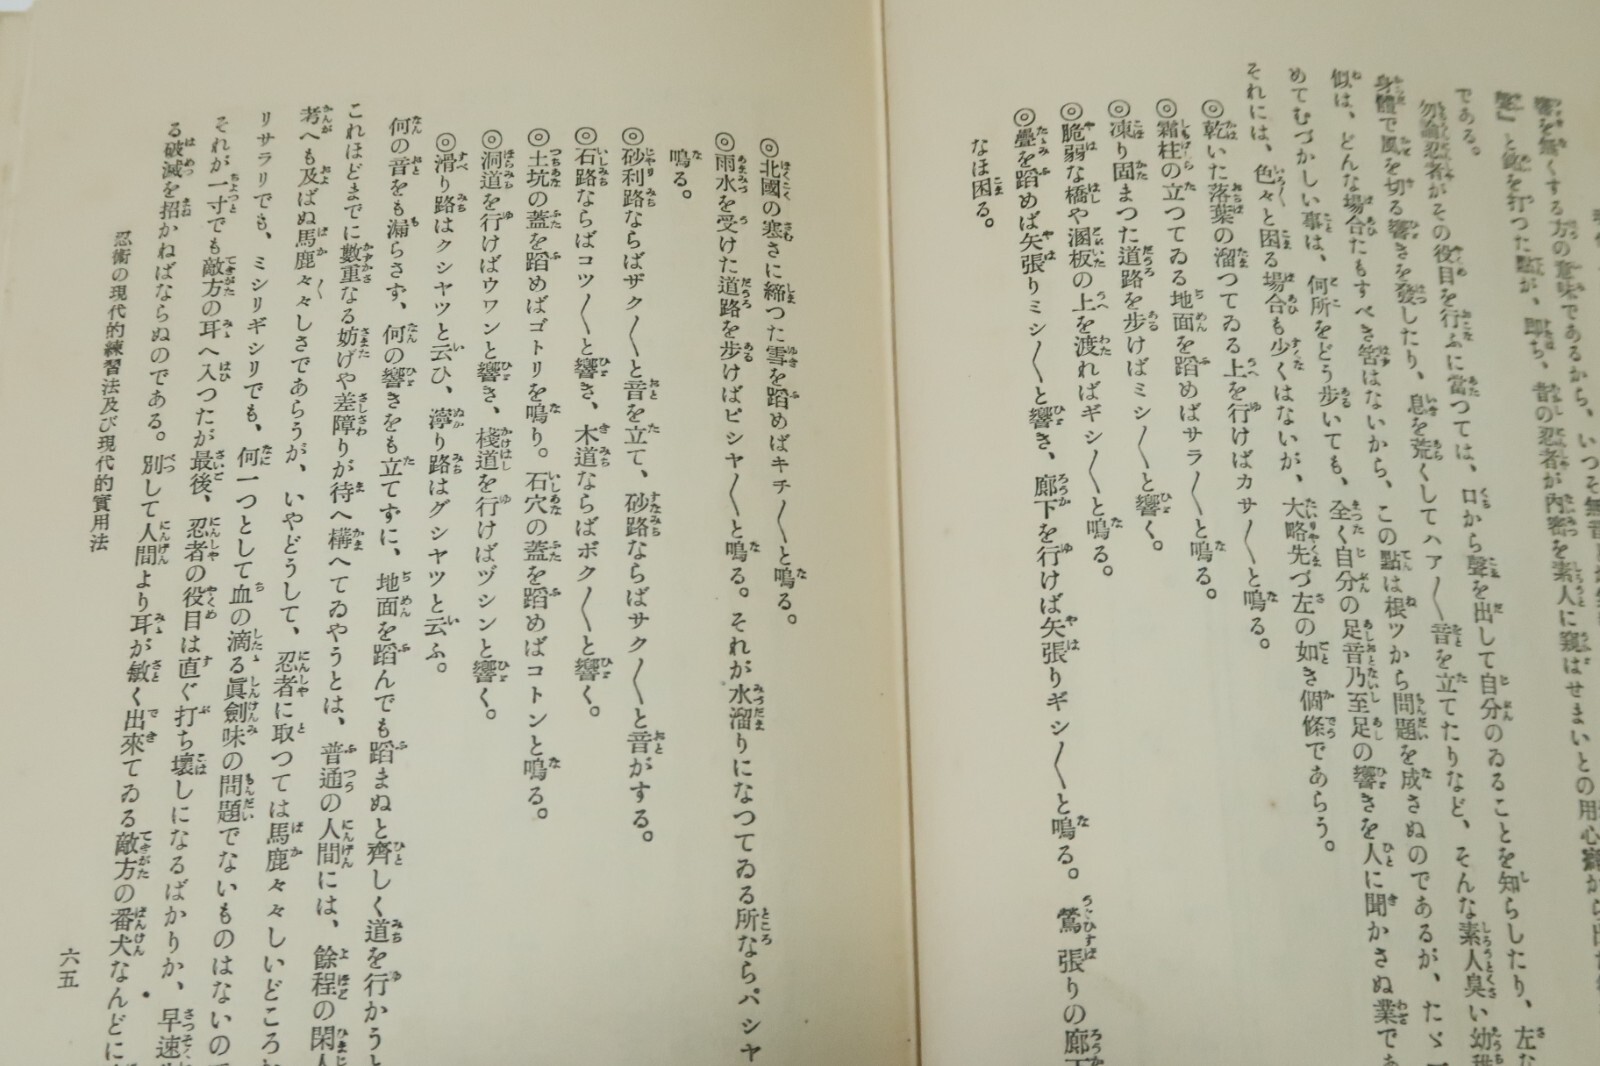 響を無くする方の意味であるから、いつそ無音
と鋲を打つた點が、即ち、昔の忍者が內密を素人に窺はせまいとの用心
である。
勿論忍者がその役目を行ふに當つては、口から聲を出して自分のゐることを知らしたり、左
身體で風を切る響きを發したり、息を荒くしてハア〳〵音を立てたりなど、そんな素人臭い幼稚
似は、どんな場合たもすべき筈はないから、この點は根ツから問題を成さぬのであるが、たゞ一
めてむづかしい事は、何所をどう歩いても、全く自分の足音乃至足の響きを人に聞かさぬ業であ
それには、色々と困る場合も少くはないが、大略先づ左の如き個條であらう。
◎乾いた落葉の溜つてゐる上を行けばカサ〳〵と鳴る。
◎霜柱の立つてゐる地面を蹈めばサラ〳〵と鳴る。
◎凍り固まつた道路を歩けばミシ〳〵と響く。
◎脆弱な橋や溷板の上を渡ればギシ〳〵と鳴る。
◎疊を蹈めば矢張りミシ〳〵と響き、廊下を行けば矢張りギシ〳〵と鳴る。鶯張りの廊下
なほ困る。
◎北國の寒さに締つた雪を蹈めばキチ〳〵と鳴る。
◎雨水を受けた道路を歩けばピシヤ〳〵と鳴る。それが水溜りになつてゐる所ならバシヤ
鳴る。
◎砂利路ならばザク〳〵と音を立て、砂路ならばサク〳〵と音がする。
◎石路ならばコツ〳〵と響き、木道ならばボク〳〵と響く。
◎土坑の蓋を蹈めばゴトリを鳴り。石穴の蓋を蹈めばコトンと鳴る。
◎洞道を行けばウワンと響き、棧道を行けばヅシンと響く。
◎滑り路はクシヤツと云ひ、濘り路はグシヤツと云ふ。
何の音をも漏らさず、何の響きをも立てずに、地面を蹈んでも蹈まぬと齊しく道を行かうと
これほどまでに數重なる妨げや差障りが待へ構へてゐやうとは、普通の人間には、餘程の閑人
考へも及ばぬ馬鹿々々しさであらうが、いやどうして、忍者に取つては馬鹿々々しいどころか
リサラリでも、ミシリギシリでも、何一つとして血の滴る眞劍味の問題でないものはないので
それが一寸でも敵方の耳へ入つたが最後、忍者の役目は直ぐ打ち壞しになるばかりか、早速
る破滅を招かねばならぬのである。別して人間より耳が敏く出來てゐる敵方の番犬なんどに
忍術の現代的練習法及び現代的實用法
六五